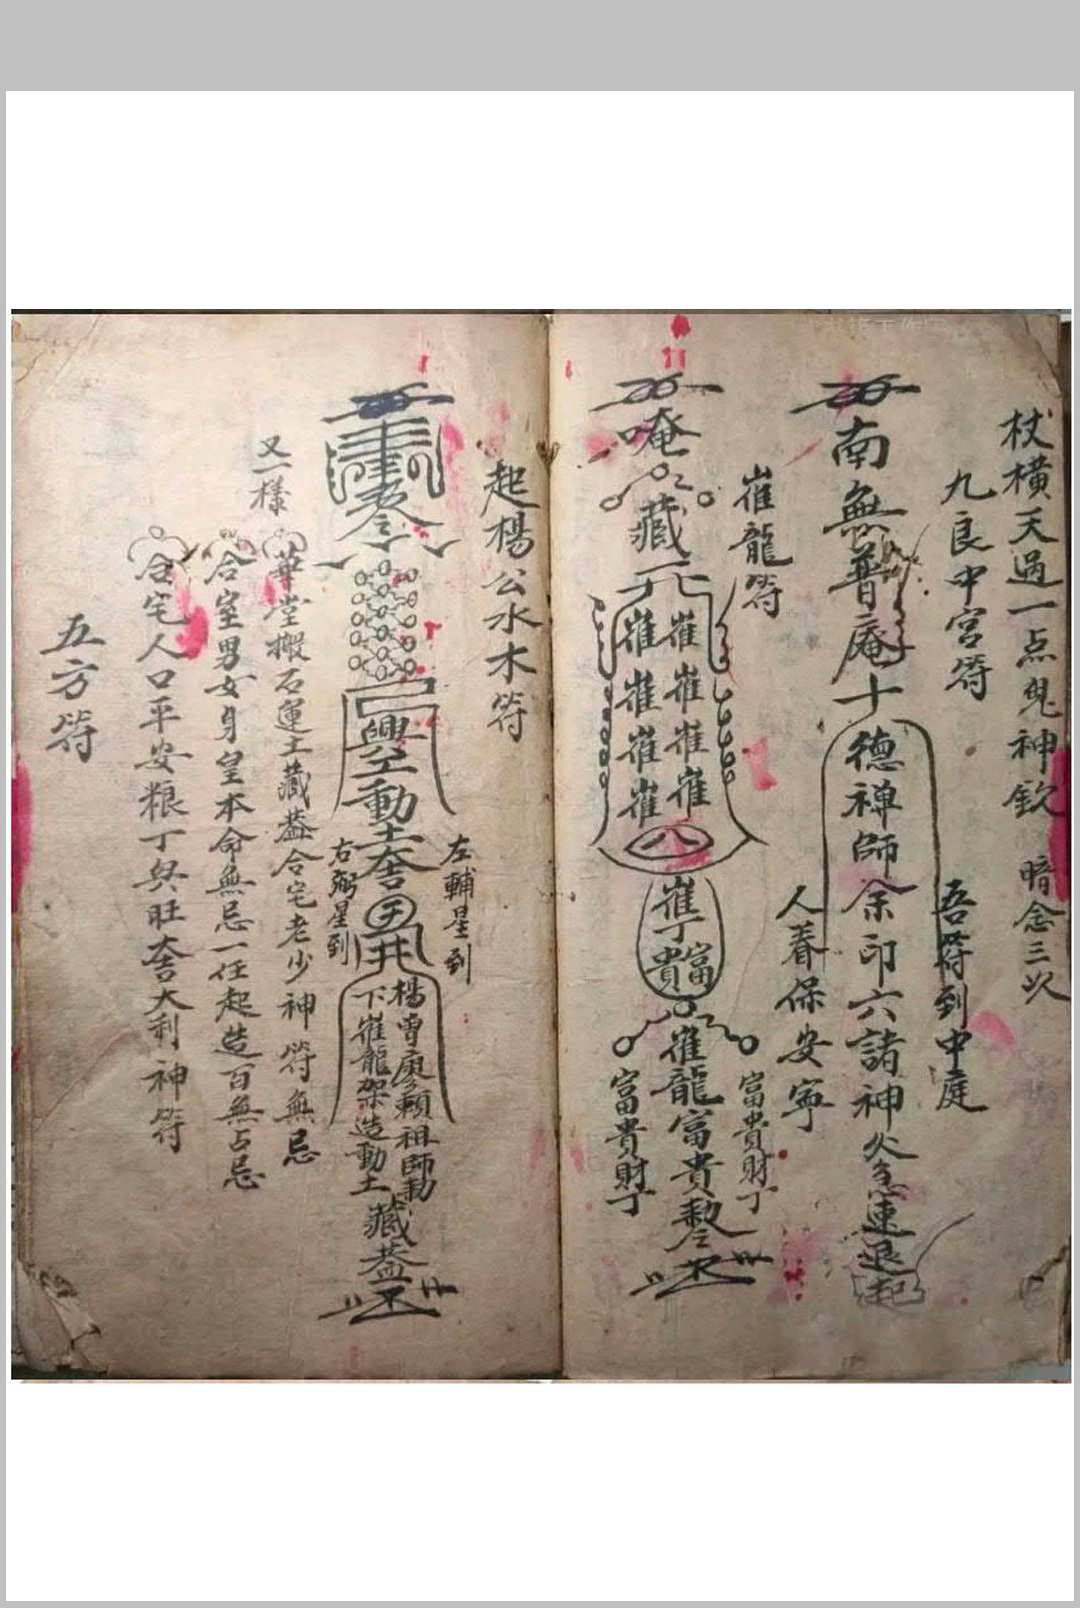 杖橫天過一点鬼神欽 暗念三次
九良中宮符
南無普庵十德禅師
印六諸神
急速退
吾符到中庭
人春保安寧
崔龍符
唵
藏
崔崔崔崔
崔崔崔崔
八
崔
富貴
崔龍富貴
富貴財丁
富貴財丁
起楊公水木符
興工動土
左輔星到
右弼星到
楊曾廖賴祖師勅
下崔龍架造動土
藏蓋
又一樣
華堂搬石運土藏蓋合宅老少神符無忌
合室男女身皇本命無忌一任起造百無占忌
合宅人口平安粮丁興旺大利神符
五方符